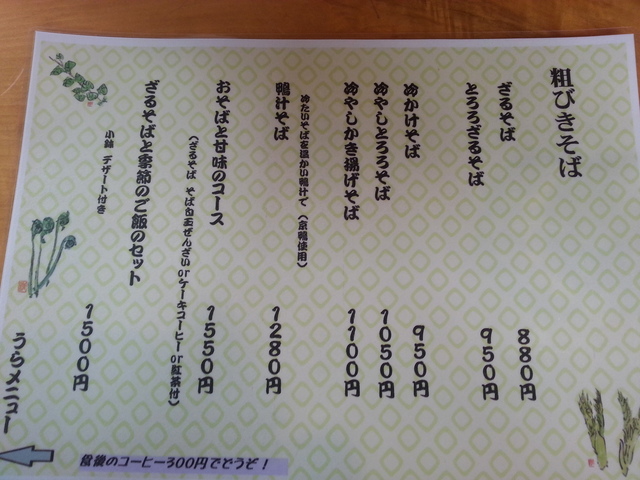 粗びきそば
ざるそば 880円
とろろざるそば 950円
冷かけそば 950円
冷やしとろろそば 1050円
冷やしかき揚げそば 1100円
鴨汁そば 1280円
冷たいそばを温かい鴨汁で(京鴨使用)
おそばと甘味のコース 1550円
(ざるそば そば白玉ぜんざいorケーキコーヒーor紅茶付)
ざるそばと季節のご飯のセット 1500円
小鉢 デザート付き
うらメニュー
食後のコーヒー300円でどうぞ!